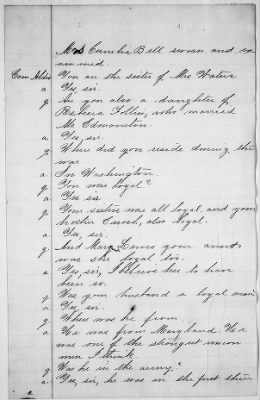 Mrs Cornelia Bell sworn and ex-
amined.
You are the sister of Mrs Waters
a. Yes, sir.
q. Are you also a daughter of
Rebecca who married
Mr Edmonston.
a. Yes, sir.
q. Where did you reside during the
war
a. In Washington.
q. You was loyal?
a. Yes sir
q. Your sisters was all loyal and your
brother Enoch, also loyal.
a. Yes, sir.
q. And Mary your aunt
was she loyal too.
a. Yes, sir, I believe her to have
been so.
q. Was your husband a loyal man
a. Yes, sir.
q. Where was he from
a. He was from Maryland. He
was one of the strongest union
men I think
q. Was he in the army?
a. Yes, sir, he was in the first three